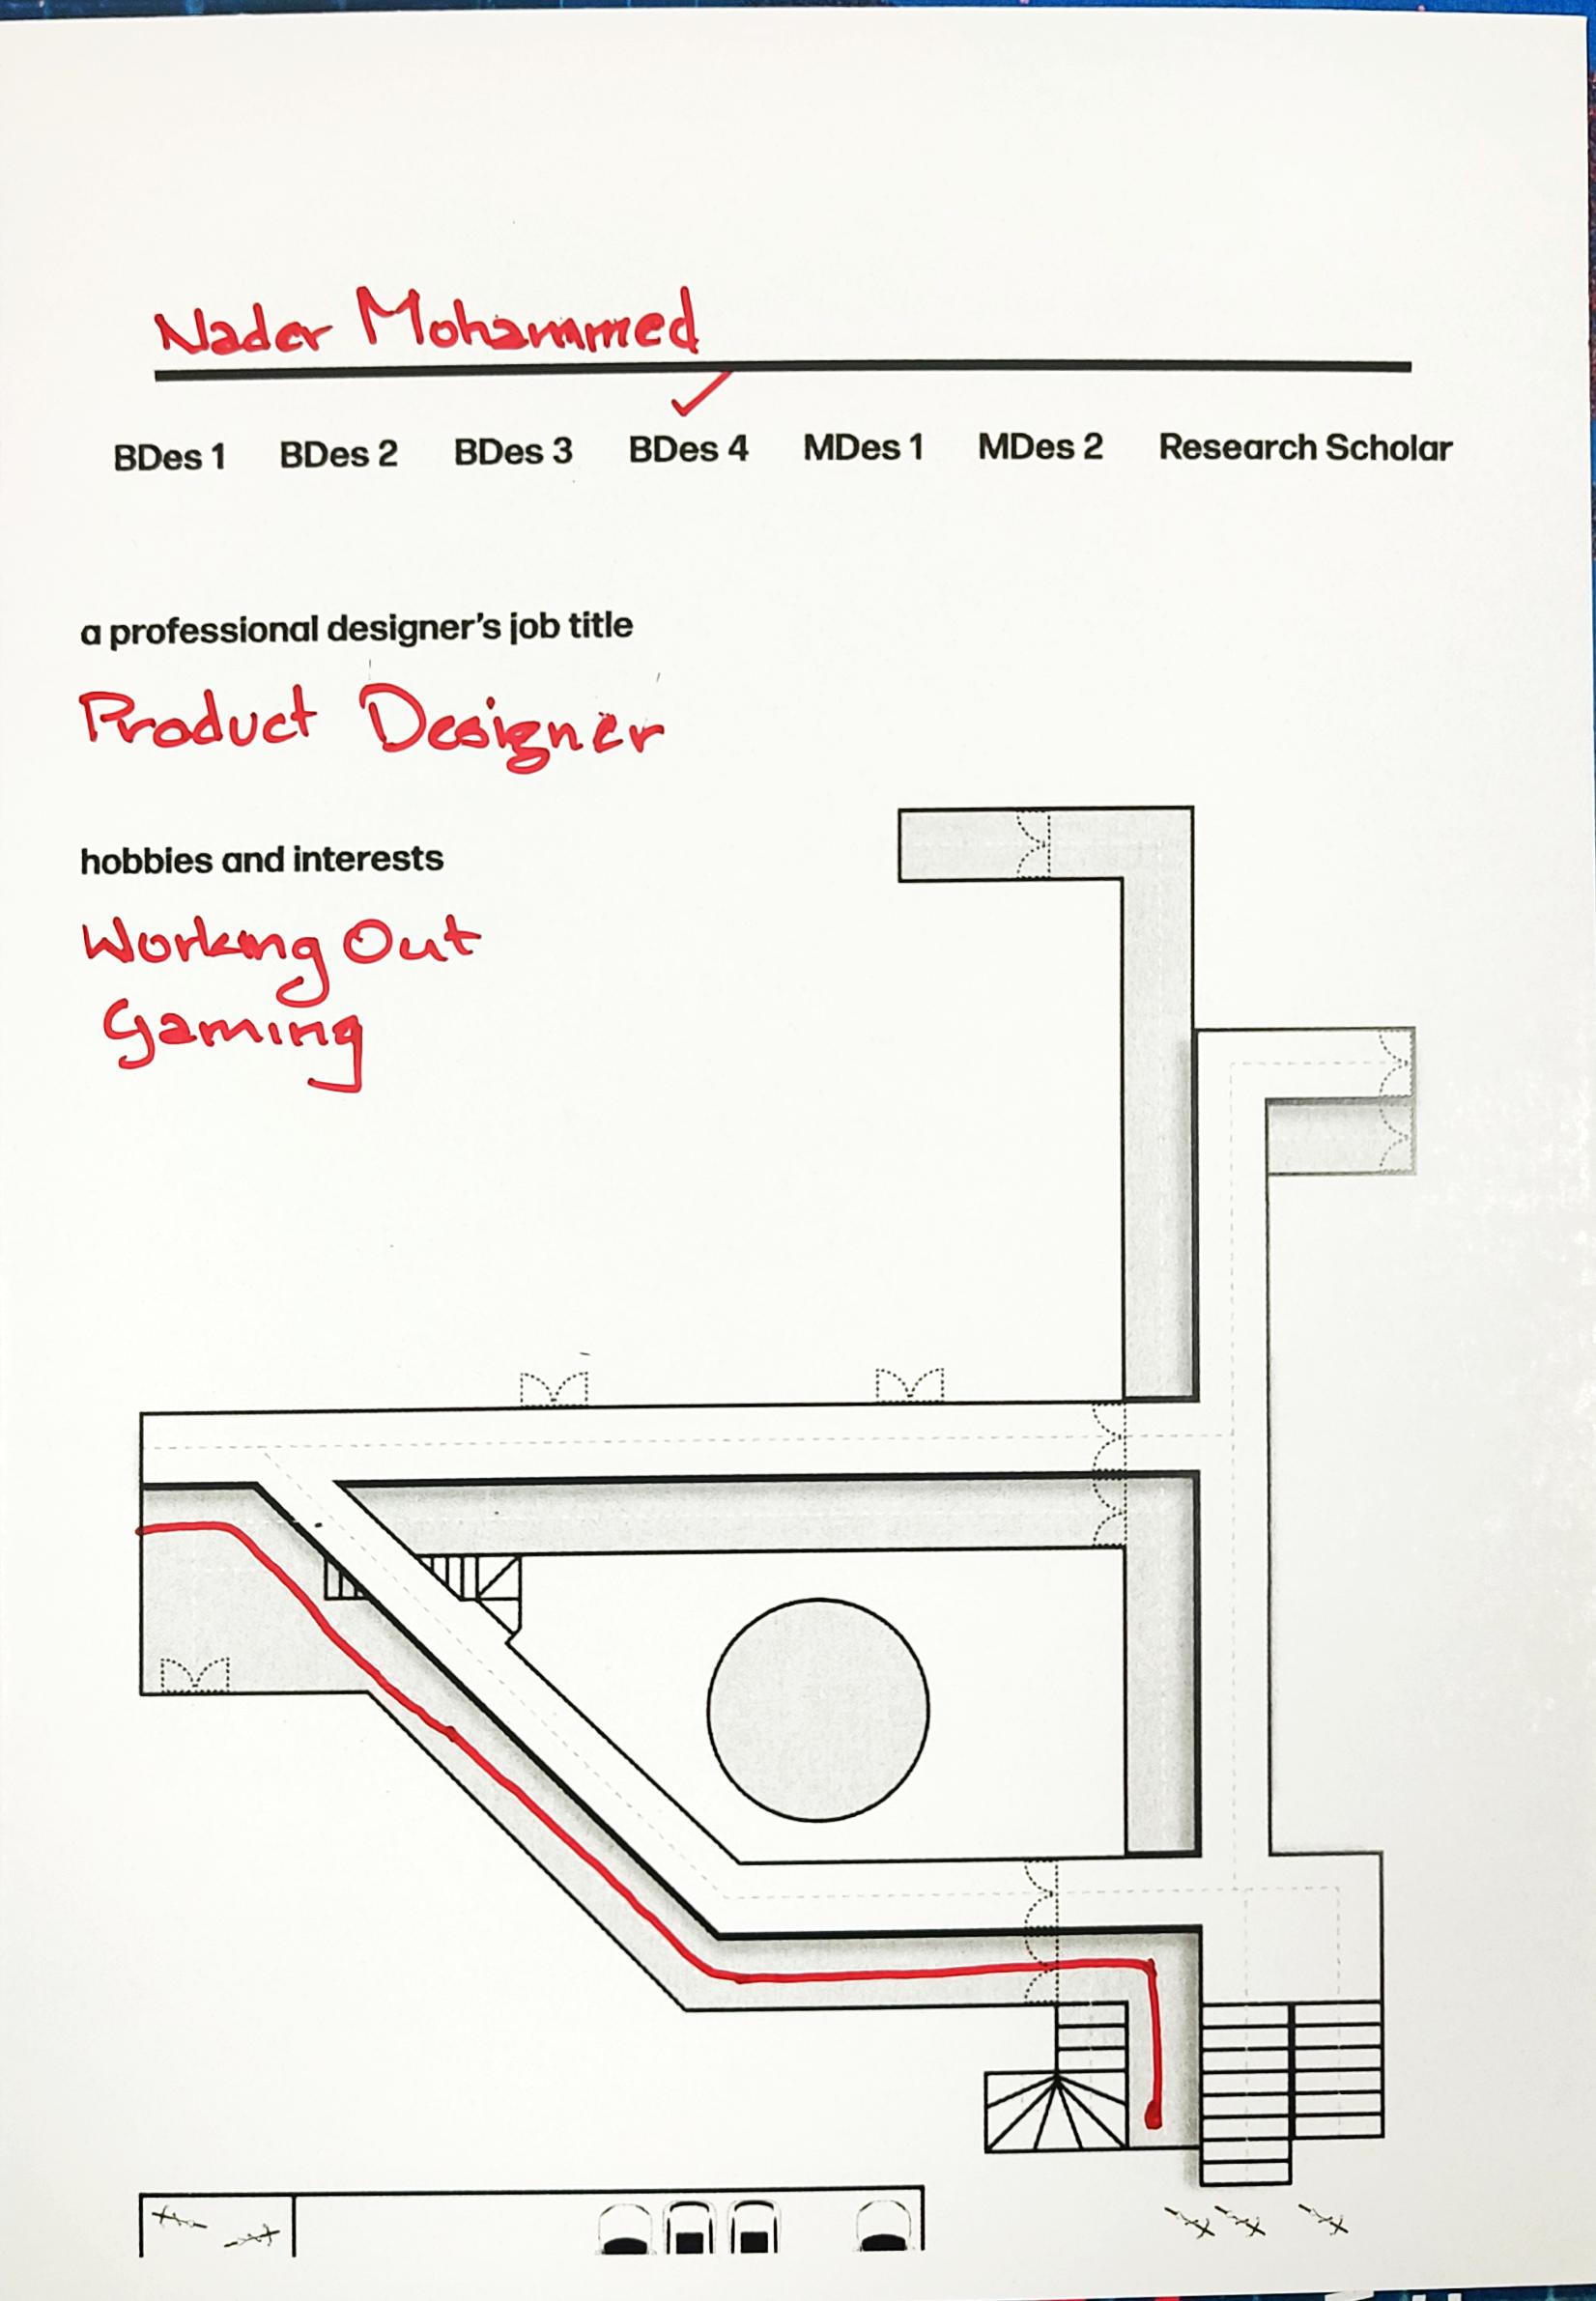 Nader Mohammed
BDes 1 BDes 2 BDes 3 BDes 4 MDes 1 MDes 2 Research Scholar
a professional designer's job title
Product Designer
hobbies and interests
Working Out
Gaming